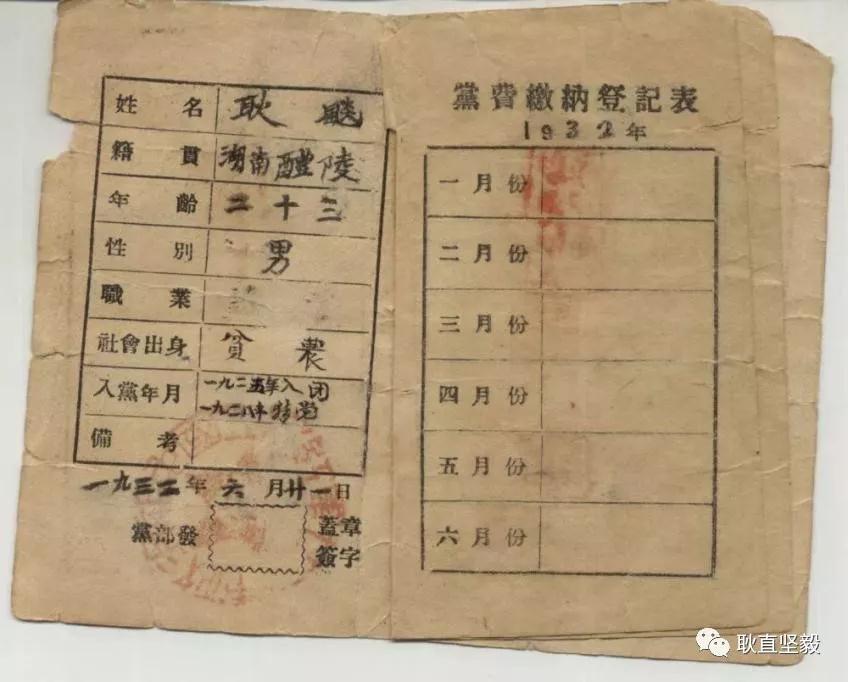 姓名 耿飚
籍貫 湖南醴陵
年齡 二十三
性別 男
職業
社會出身 貧農
入黨年月 一九二五年入团
一九二八年轉党
備考
一九三二年六月廿一日
黨部發
蓋章
簽字
黨費繳納登記表
1932年
一月份
二月份
三月份
四月份
五月份
六月份
耿直坚毅